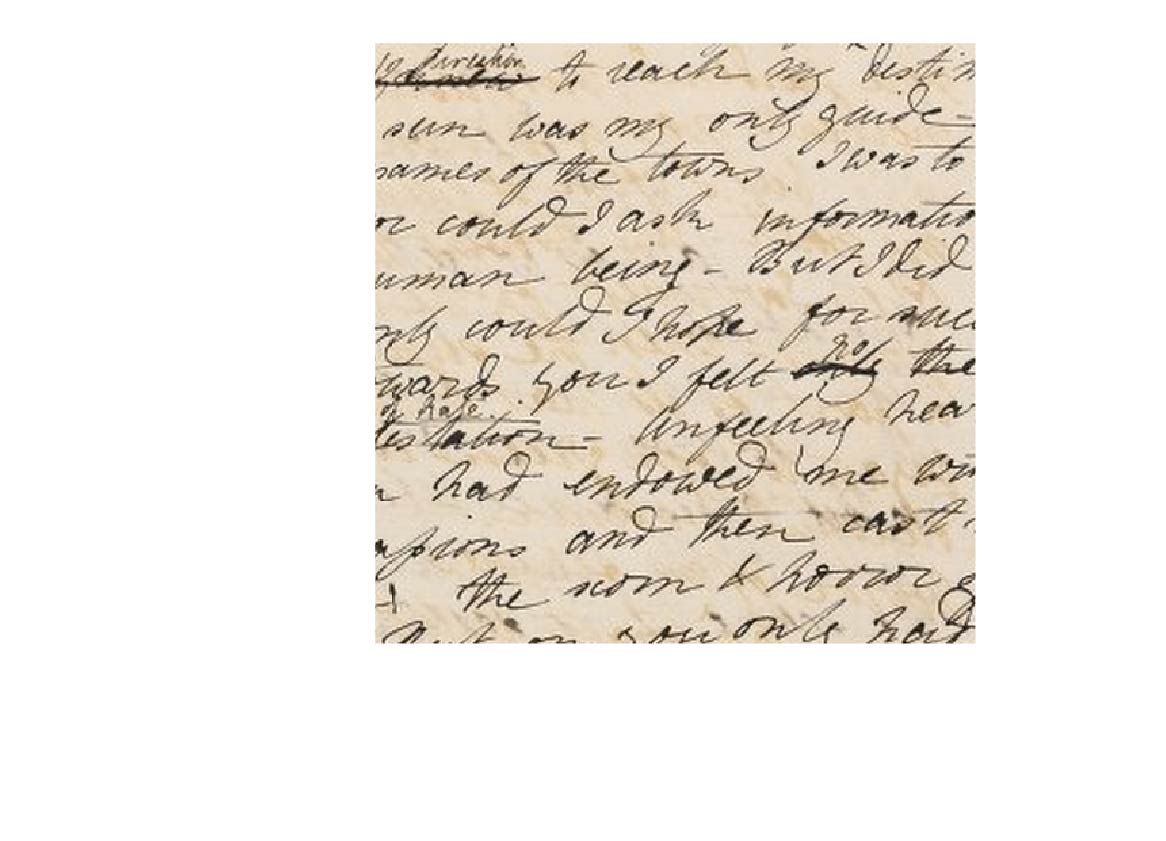 direction
to reach my destin
sun was my only guide-
names of the towns I was to
or could I ask informatio
uman being - But I did
nly could I hope for succ
not
wards you I felt only the
of hate
testation - Unfeeling hea
had endowed me wi
assions and then cast
the scorn & horror
But on you only had